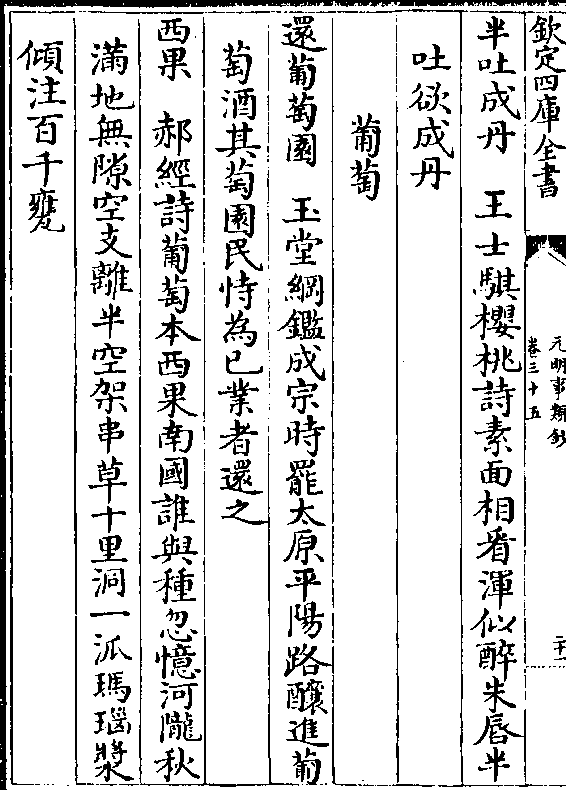 欽定四庫全書
元明事類鈔
卷三十五
二十一
半吐成丹　王士騏櫻桃詩素面相看渾似醉朱唇半
吐欲成丹
葡萄
還葡萄園　玉堂綱鑑成宗時罷太原平陽路釀進葡
萄酒其萄園民恃為已業者還之
西果　郝經詩葡萄本西果南國誰與種忽憶河隴秋
滿地無隙空支離半空架串草十里洞一派瑪瑙漿
傾注百千甕